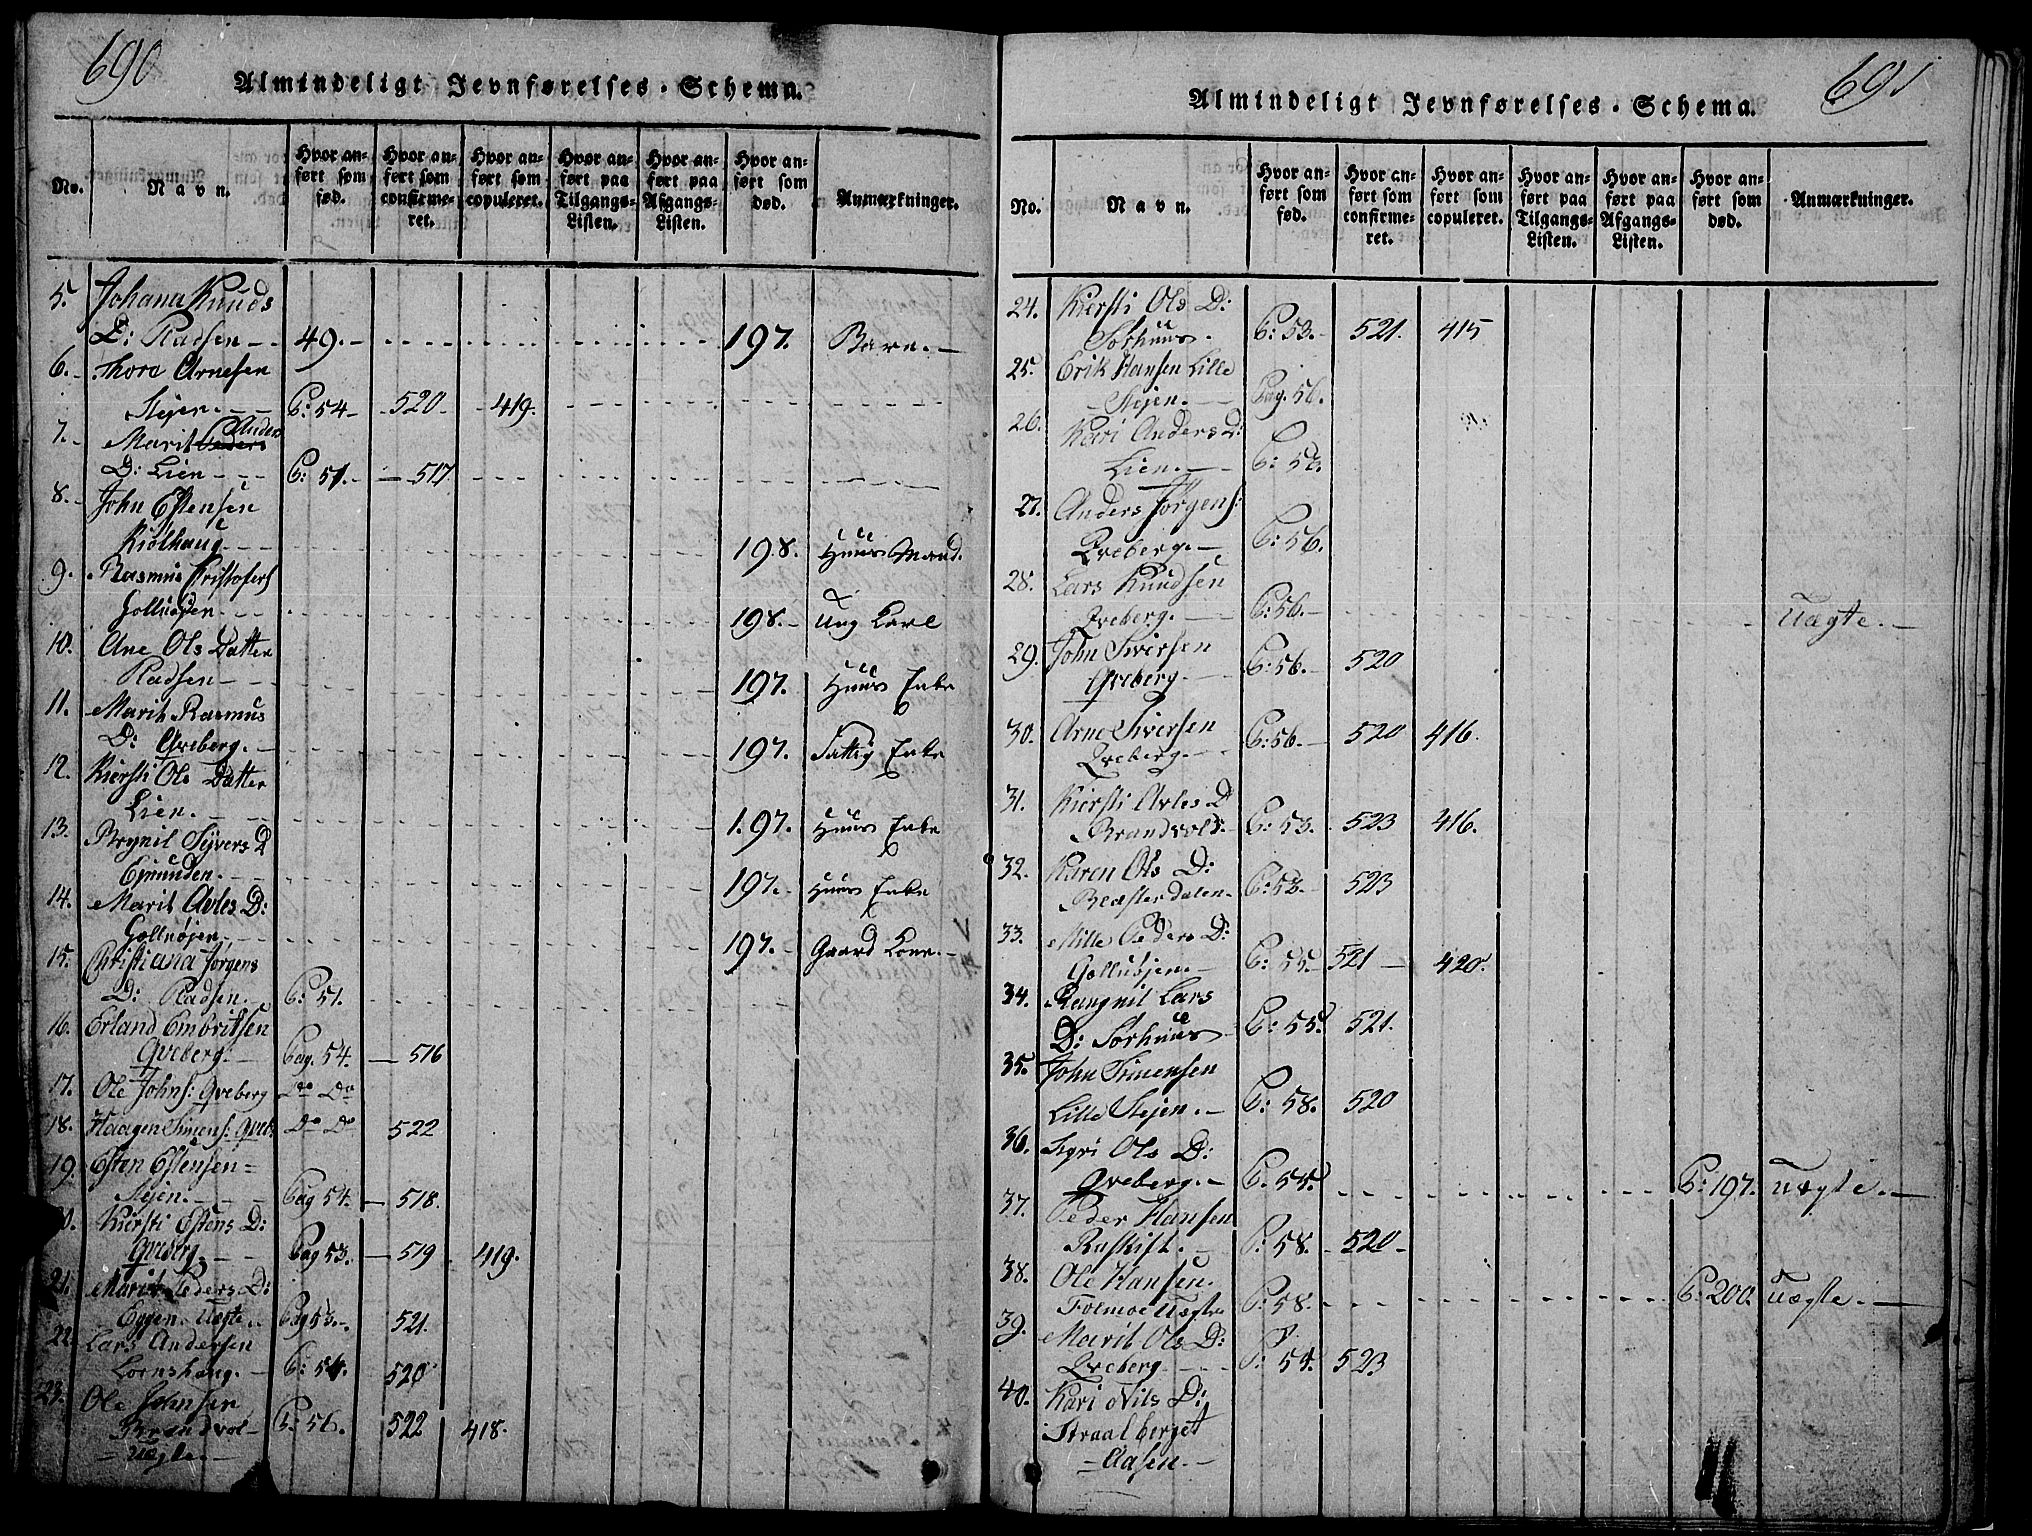 690
Almindeligt Jevnførelses-Schema.
No.
Navn.
Hvor anført som fød.
Hvor anført som confirmeret.
Hvor anført som copuleret.
Hvor anført paa Tilgangs-Listen.
Hvor anført paa Afgangs-Listen.
Hvor anført som død.
Anmærkninger.
5. Johana Knuds
D: Pladsen 49. 197. Barn.
6. Thore Arnesen
Stejen P: 54 520 419.
7. Marit Anders
D: Lien P: 51. 517
8. John Estensen
Kiølhaug 198. Huus Mand.
9. Rasmus Kristofers
198. Ung Karl
10. Ane Ols Datter
Pladsen 197. Huus Enke
11. Marit Rasmus
D: Qveberg. 197. Fattig Enke
12. Kiersti Ols Datter
Lien. 197. Huus Enke
13. Brynil Syvers D
Egnunden. 197. Huus Enke
14. Marit Avles D:
Gollnøjen 197. Gaard Kone.
15. Christiana Jørgens
D: Pladsen. P: 51.
16. Erland Embritsen
Qveberg. Pag. 54. 516
17. Ole Johns: Qveberg Do Do
18. Haagen Simens: Qveb: Do Do 522
19. Esten Estensen
Stejen. Pag 54. 518.
20. Kiersti Estens D:
Qveberg Pag 53. 519 419.
21. Marit Peders D:
Eggen. Uægte. Pag 53. 521.
22. Lars Andersen
Lornshaug. P: 54. 520
23. Ole Johnsen P: 56. 522 418.
Brandvol
Uægte.
691
Almindeligt Jevnførelses-Schema.
No.
Navn.
Hvor anført som fød.
Hvor anført som confirmeret.
Hvor anført som copuleret.
Hvor anført paa Tilgangs-Listen.
Hvor anført paa Afgangs-Listen.
Hvor anført som død.
Anmærkninger.
24. Kiersti Ols D:
Sorhuus. P: 53. 521. 415
25. Erik Hansen Lille
Stejen. Pag. 56.
26. Kari Anders D:
Lien. P: 56.
27. Anders Jørgens:
Qveberg. P: 56.
28. Lars Knudsen
Qveberg. P: 56. Uægte.
29. John Siversen
Qveberg. P: 56. 520
30. Arne Siversen
Qveberg. P: 56. 520 416.
31. Kiersti Avles D
Brandvold. P: 53. 523 416.
32. Karen Ols D:
Blæsterdalen. P: 53. 523
33. Mille Peders D:
P: 55. 521 420.
34. Rangnil Lars
D: Sorhuus P: 55. 521.
35. John Simensen
Lille Stejen. P: 58. 520
36. Sigri Ols D:
Qveberg. P: 54. P: 197. Uægte.
37. Peder Hansen
Raskift. P: 58. 520
38. Ole Hansen.
Folmoe Uægte P: 58. P: 200. Uægte.
39. Marit Ols D:
Qveberg. P: 54. 523
40. Kari Nils D:
Straalberget
Aasen.